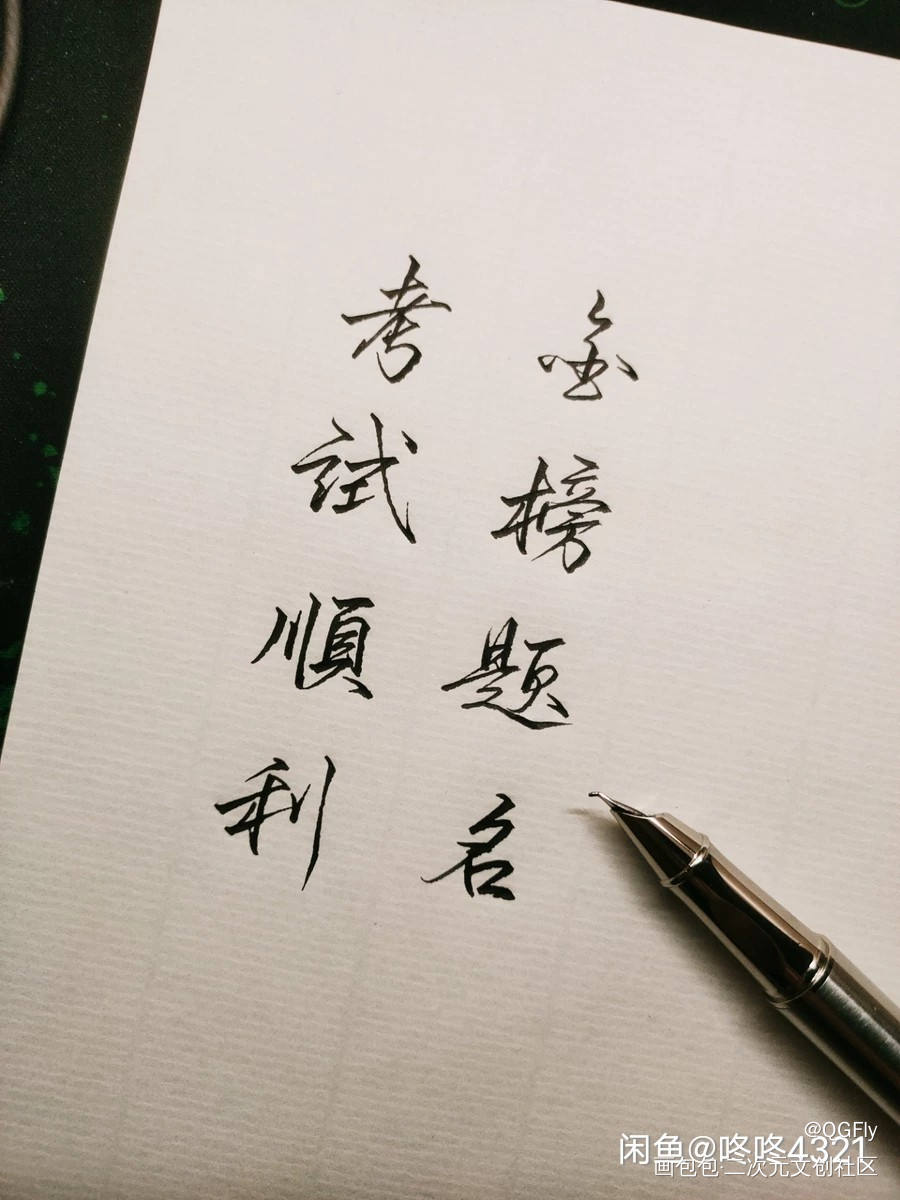 金榜题名
考試順利
@OGFly
闲鱼@咚咚4321
画包包:二次元文创社区